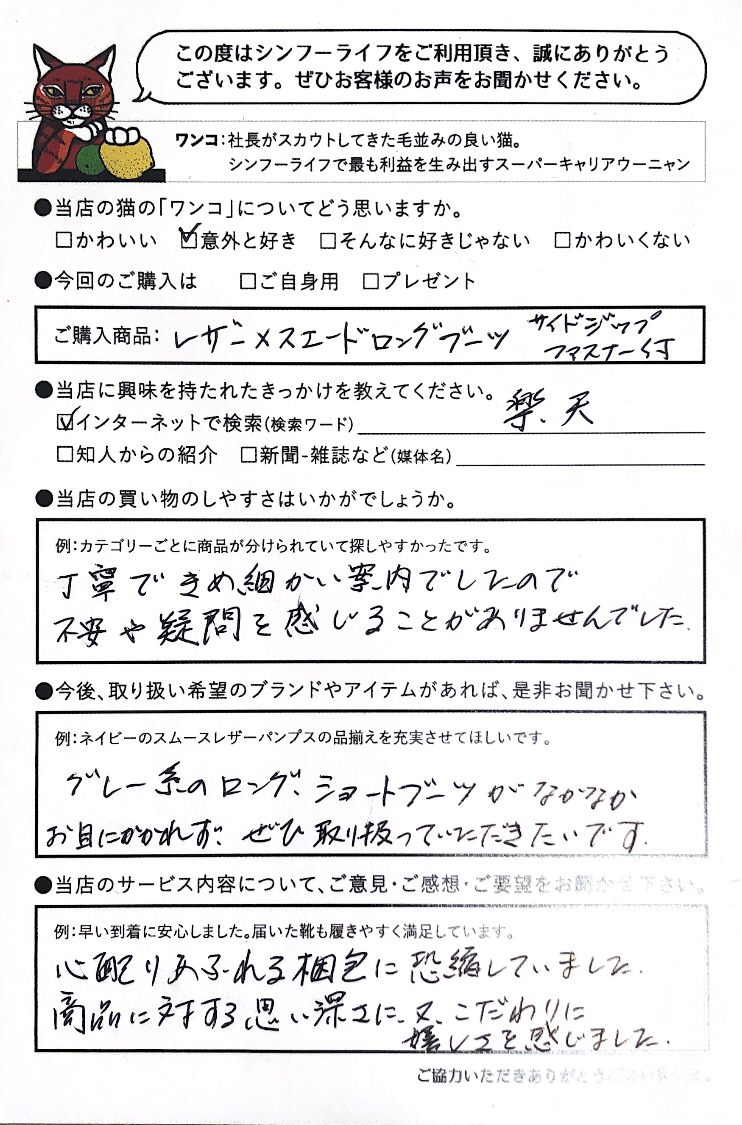 この度はシンフーライフをご利用頂き、誠にありがとう
ございます。ぜひお客様のお声をお聞かせください。
ワンコ:社長がスカウトしてきた毛並みの良い猫。
シンフーライフで最も利益を生み出すスーパーキャリアウーニャン
●当店の猫の「ワンコ」についてどう思いますか。
□かわいい ☑意外と好き □そんなに好きじゃない □かわいくない
●今回のご購入は □ご自身用 □プレゼント
ご購入商品: レザー×スエードロングブーツ サイドジップ
ファスナー付
●当店に興味を持たれたきっかけを教えてください。
☑インターネットで検索(検索ワード) 楽天
□知人からの紹介 □新聞-雑誌など(媒体名)
●当店の買い物のしやすさはいかがでしょうか。
例:カテゴリーごとに商品が分けられていて探しやすかったです。
丁寧できめ細かい案内でしたので
不安や疑問を感じることがありませんでした.
●今後、取り扱い希望のブランドやアイテムがあれば、是非お聞かせ下さい。
例:ネイビーのスムースレザーパンプスの品揃えを充実させてほしいです。
グレー系のロング、ショートブーツがなかなか
お目にかかれず、ぜひ取り扱っていただきたいです.
●当店のサービス内容について、ご意見・ご感想・ご要望をお聞かせ下さい。
例:早い到着に安心しました。届いた靴も履きやすく満足しています。
心配りあふれる梱包に恐縮していました.
商品に対する思い深さに、又、こだわりに
嬉しさを感じました.
ご協力いただきありがとうございました。